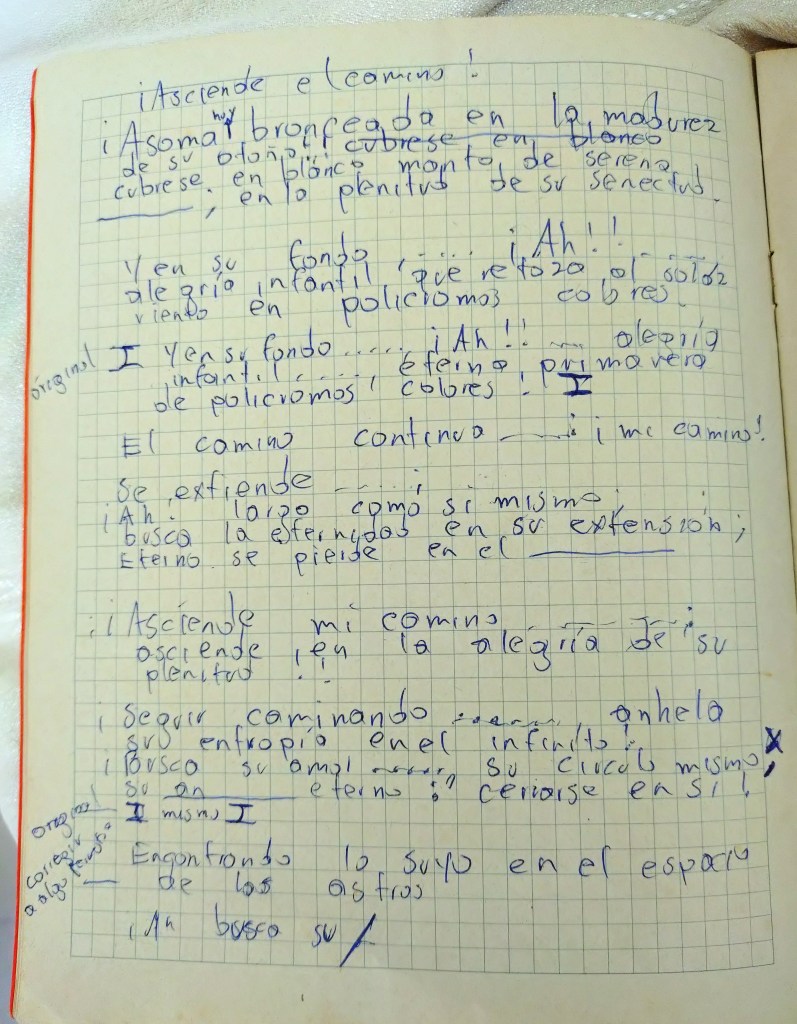 ¡Asciende el camino!
muy
¡Asoma bronceada en la madurez
de su otoño! cubrese en blanco
cubrese en blanco manto de serena
______; en la plenitud de su senectud.
Y en su fondo ...... ¡Ah!! ......
alegría infantil que retoza al sol
viento en policromos colores.
original I Y en su fondo ..... ¡Ah!! ..... alegría
infantil ...... eterna primavera
de policromos colores! I
El camino continua ------ ¡¡mi camino!
Se extiende ......¡
¡Ah! largo como si mismo;
busca la eternidad en su extensión;
Eterno se pierde en el ______
¡¡Asciende mi camino ------
asciende ¡en la alegría de su
plenitud!!
¡Seguir caminando ......, anhela
su entropía en el infinito!
¡Busca su amor ...... su circulo mismo, x
su an______ eterno cerrarse en si!
original I mismo I
corregir
a algo
Encontrando lo suyo en el espacio
de los astros
busca su /